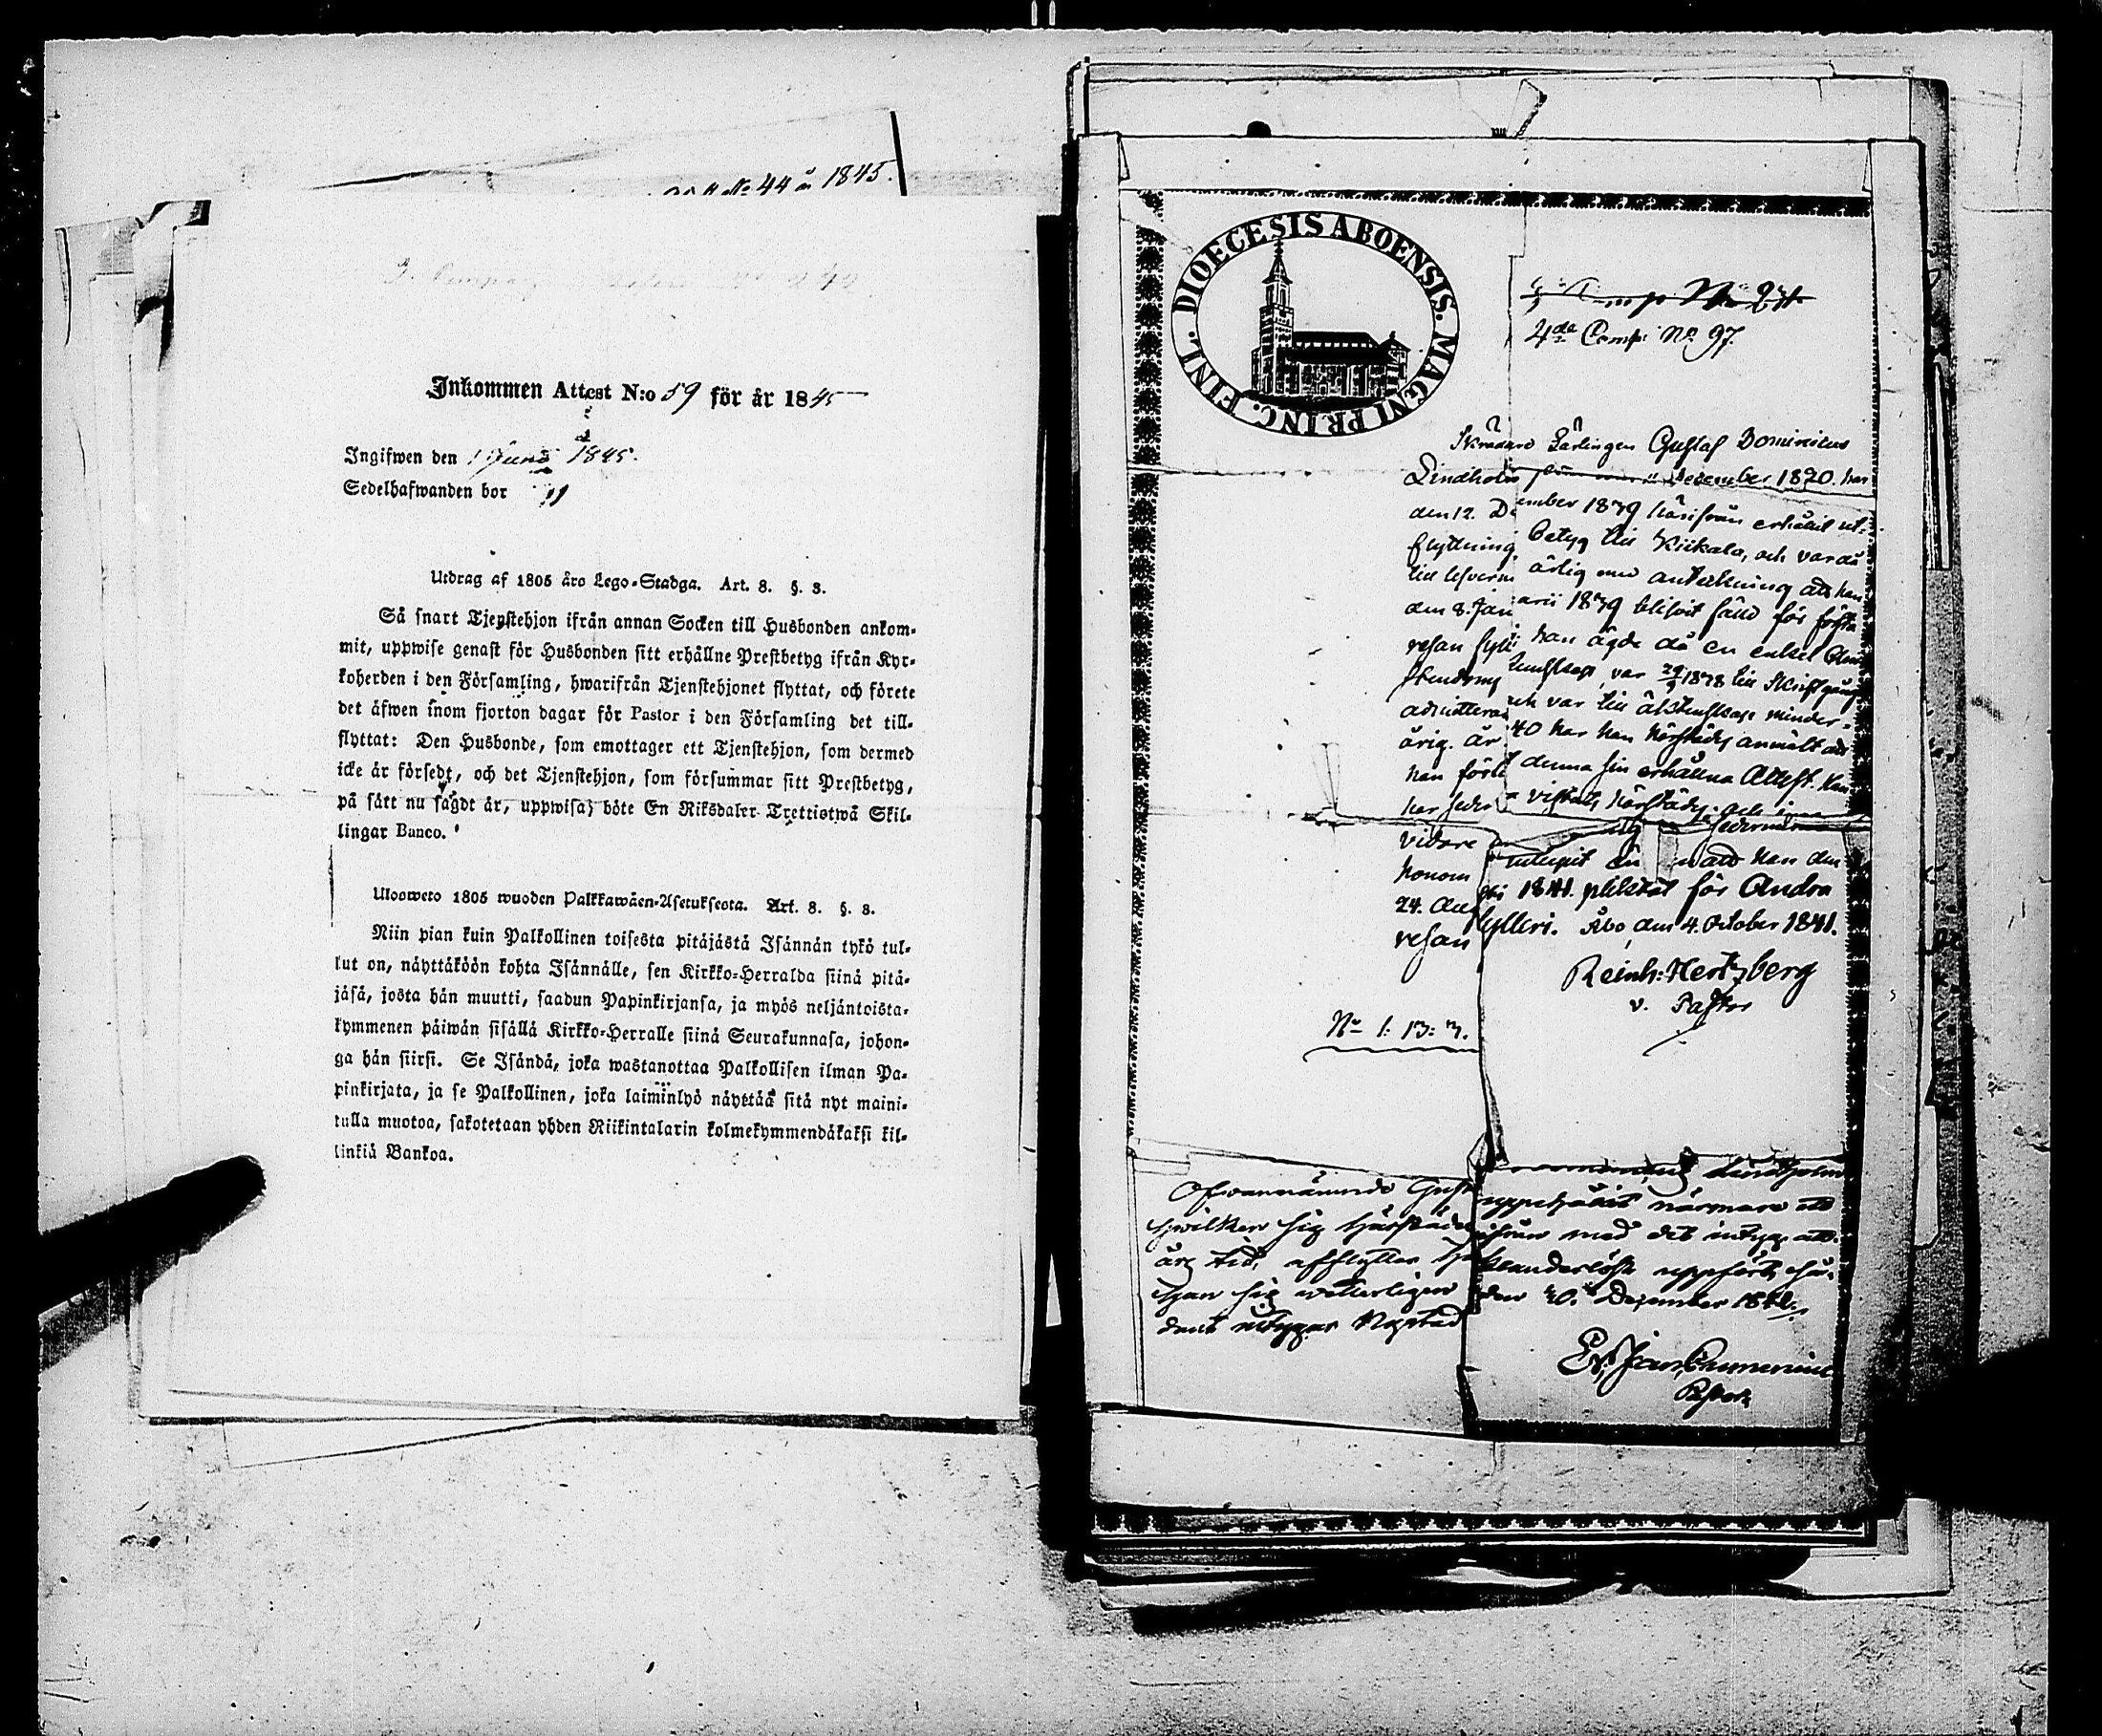 No 44 år 1845.
Inkommen Attest N:o 59 för år 1845
Ingifwen den 1 Junii 1845.
Sedelhafwanden bor
Utdrag af 1805 åro Lego-Stadga. Art. 8. §. 3.
Så snart Tjenstehjon ifrån annan Socken till Husbonden ankom-
mit, uppwise genast för Husbonden sitt erhållne Prestbetyg ifrån Kyr-
koherden i den Församling, hwarifrån Tjenstehjonet flyttat, och förete
det äfwen inom fjorton dagar för Pastor i den Församling det till-
flyttat: Den Husbonde, som emottager ett Tjenstehjon, som dermed
icke är försedt, och det Tjenstehjon, som försummar sitt Prestbetyg,
på sätt nu sagdt är, uppwisa; böte En Riksdaler Trettiotwå Skil-
lingar Banco.
Ulosweto 1805 wuoden Palkkawäen-Asetuksesta. Art. 8. §. 3.
Niin pian kuin Palkollinen toisesta pitäjästä Isännän tykö tul-
lut on, näyttäköön kohta Isännälle, sen Kirkko-Herralda siinä pitä-
jäsä, josta hän muutti, saadun Papinkirjansa, ja myös neljäntoista-
kymmenen päiwän sisällä Kirkko-Herralle siinä Seurakunnasa, johon-
ga hän siirsi. Se Isändä, joka wastanottaa Palkollisen ilman Pa-
pinkirjata, ja se Palkollinen, joka laiminlyö näyttää sitä nyt maini-
tulla muotoa, sakotetaan yhden Riikintalarin kolmekymmendäkaksi kil-
linkiä Bankoa.
DIOECESIS ABOENSIS. MAGNI PRINC. FINL.
4da Comp: No 97.
Skrädare Lärlingen Gustaf Dominicus
Lindholm December 1820. har
den 12. December 1839 härifrån erhållit ut-
flyttning betyg till Kiikala, och var då
till lefvern ärlig med anteckning att han
den 8. Januarii 1839 blifvit fälld för första
resan fylleri han ägde då en enkel
kunskap, var 1838 till Skriftgång
admitterad och var till äktenskap minder-
årig. År 40 har han härstädes anmält att
han förlorat denna sin erhållna Attest. Han
har sedan vistats härstädes och
vidare
honom intygit än att han den
24. Augusti 1841. pliktat för Andra
resan fylleri. Åbo, den 4. October 1841.
Reinh: Hertzberg
v. Pastor
No 1: 13: 3.
Ofvannämnde Gust Lindholm
hwilken sig härstädes uppehållit närmare ett
års tid, afflyttar härifrån med det intyg att
han sig wetterligen klanderlöst uppfört,
den 20. December 1842.
Pastor